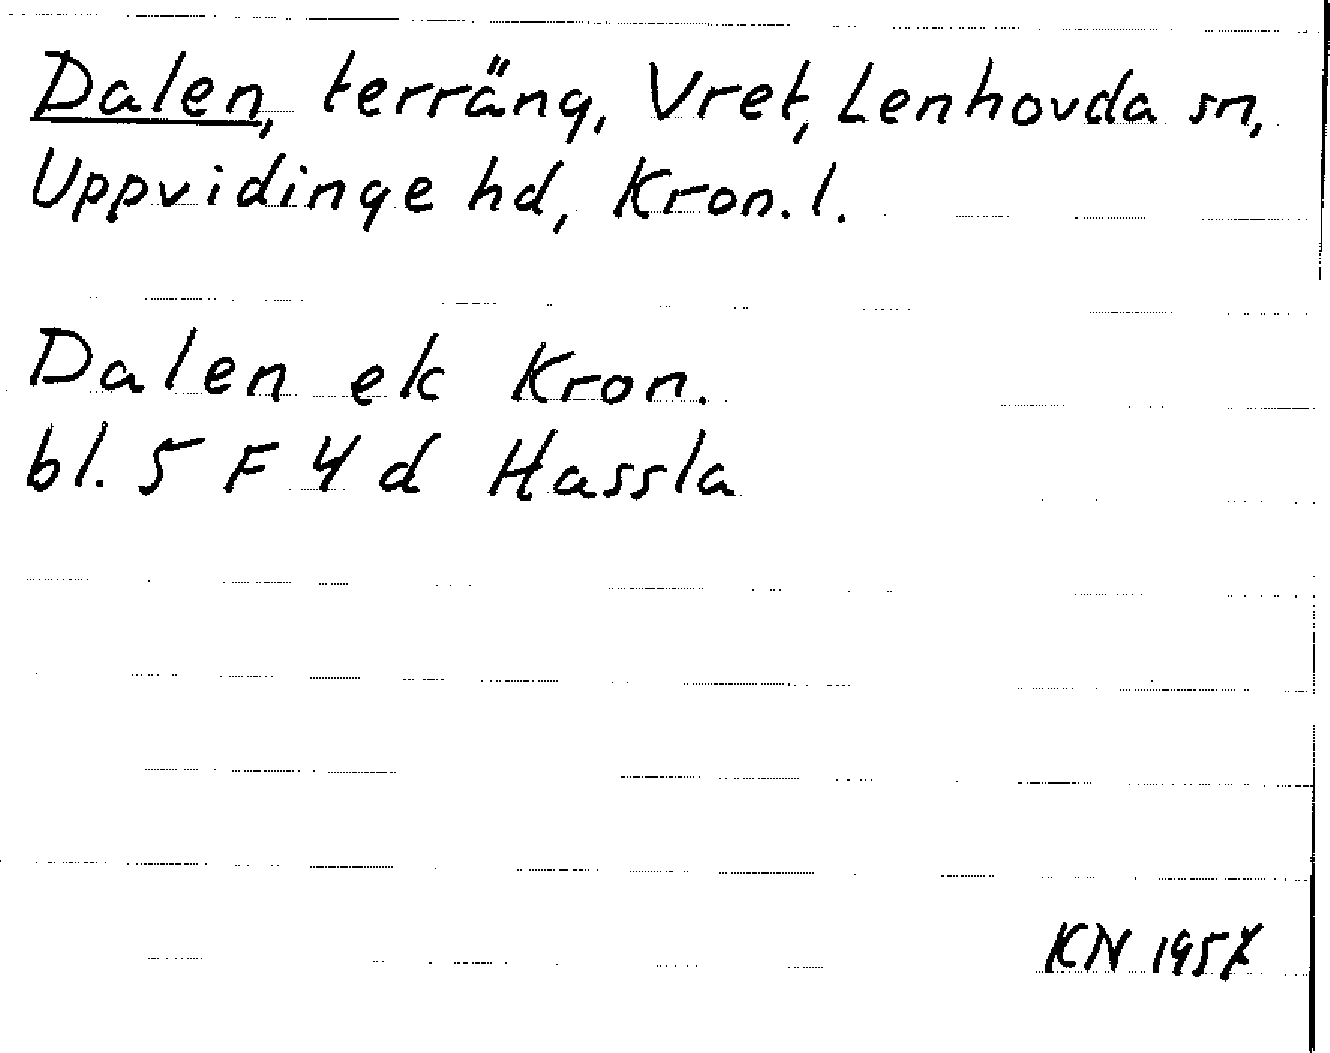 Dalen, terräng, Vret, Lenhovda sn,
Uppvidinge hd, Kron. l.
Dalen ek Kron.
bl. 5 F 4 d Hassla
KN 1957